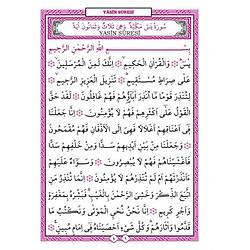 YÂSÎN SÛRESİ
سُورَةُ يٰسٓ مَكِّيَّةٌ وَهِيَ ثَلَاثٌ وَثَمَانُونَ اٰيَةً
YASİN SÛRESİ
بِسْمِ اللّٰهِ الرَّحْمٰنِ الرَّحِيمِ
يٰسٓ وَالْقُرْاٰنِ الْحَكِيمِ اِنَّكَ لَمِنَ الْمُرْسَلِينَ
عَلٰى صِرَاطٍ مُسْتَقِيمٍ تَنْزِيلَ الْعَزِيزِ الرَّحِيمِ
لِتُنْذِرَ قَوْمًا مَٓا اُنْذِرَ اٰبَٓاؤُهُمْ فَهُمْ غَافِلُونَ لَقَدْ حَقَّ
الْقَوْلُ عَلٰٓى اَكْثَرِهِمْ فَهُمْ لَا يُؤْمِنُونَ اِنَّا جَعَلْنَا
فِٓي اَعْنَاقِهِمْ اَغْلَالًا فَهِيَ اِلَى الْاَذْقَانِ فَهُمْ مُقْمَحُونَ
وَجَعَلْنَا مِنْ بَيْنِ اَيْدِيهِمْ سَدًّا وَمِنْ خَلْفِهِمْ سَدًّا
فَاَغْشَيْنَاهُمْ فَهُمْ لَا يُبْصِرُونَ وَسَوَٓاءٌ عَلَيْهِمْ
ءَاَنْذَرْتَهُمْ اَمْ لَمْ تُنْذِرْهُمْ لَا يُؤْمِنُونَ اِنَّمَا تُنْذِرُ مَنِ
اتَّبَعَ الذِّكْرَ وَخَشِيَ الرَّحْمٰنَ بِالْغَيْبِ فَبَشِّرْهُ بِمَغْفِرَةٍ
وَاَجْرٍ كَرِيمٍ اِنَّا نَحْنُ نُحْيِي الْمَوْتٰى وَنَكْتُبُ مَا
قَدَّمُوا وَاٰثَارَهُمْ وَكُلَّ شَيْءٍ اَحْصَيْنَاهُ فِٓي اِمَامٍ مُبِينٍ